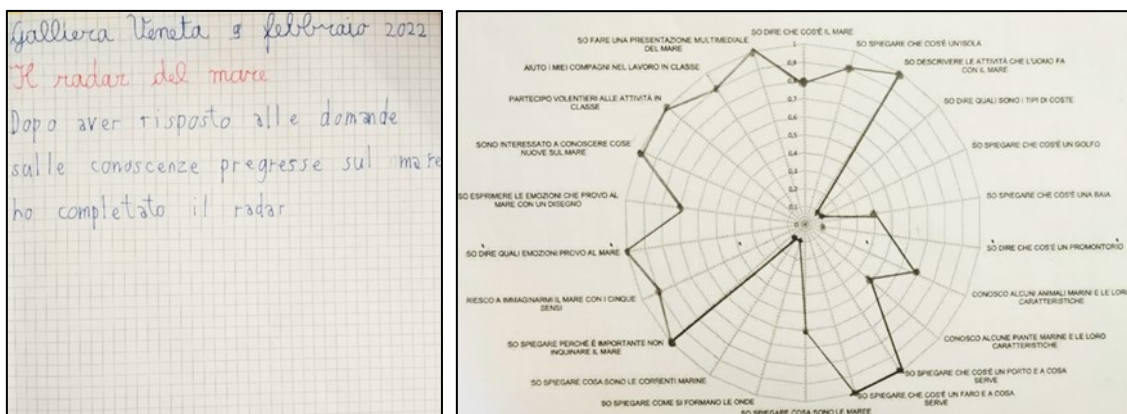 Galliera Veneta 9 febbraio 2022
Il radar del mare
Dopo aver risposto alle domande
sulle conoscenze pregresse sul mare
ho completato il radar
SO DIRE CHE COS'È IL MARE
SO SPIEGARE CHE COS'È UN'ISOLA
SO DESCRIVERE LE ATTIVITÀ CHE L'UOMO FA
CON IL MARE
SO DIRE QUALI SONO I TIPI DI COSTE
SO SPIEGARE CHE COS'È UN GOLFO
SO SPIEGARE CHE COS'È UNA BAIA
SO DIRE CHE COS'È UN PROMONTORIO
CONOSCO ALCUNI ANIMALI MARINI E LE LORO
CARATTERISTICHE
CONOSCO ALCUNE PIANTE MARINE E LE LORO
CARATTERISTICHE
SO SPIEGARE CHE COS'È UN PORTO E A COSA
SERVE
SO SPIEGARE CHE COS'È UN FARO E A COSA
SERVE
SO SPIEGARE COSA SONO LE MAREE
SO SPIEGARE COME SI FORMANO LE ONDE
SO SPIEGARE COSA SONO LE CORRENTI MARINE
SO SPIEGARE PERCHÉ È IMPORTANTE NON
INQUINARE IL MARE
RIESCO A IMMAGINARMI IL MARE CON I CINQUE
SENSI
SO DIRE QUALI EMOZIONI PROVO AL MARE
SO ESPRIMERE LE EMOZIONI CHE PROVO AL
MARE CON UN DISEGNO
SONO INTERESSATO A CONOSCERE COSE
NUOVE SUL MARE
PARTECIPO VOLENTIERI ALLE ATTIVITÀ IN
CLASSE
AIUTO I MIEI COMPAGNI NEL LAVORO IN CLASSE
SO FARE UNA PRESENTAZIONE MULTIMEDIALE
DEL MARE
1
0,9
0,8
0,7
0,6
0,5
0,4
0,3
0,2
0,1
0